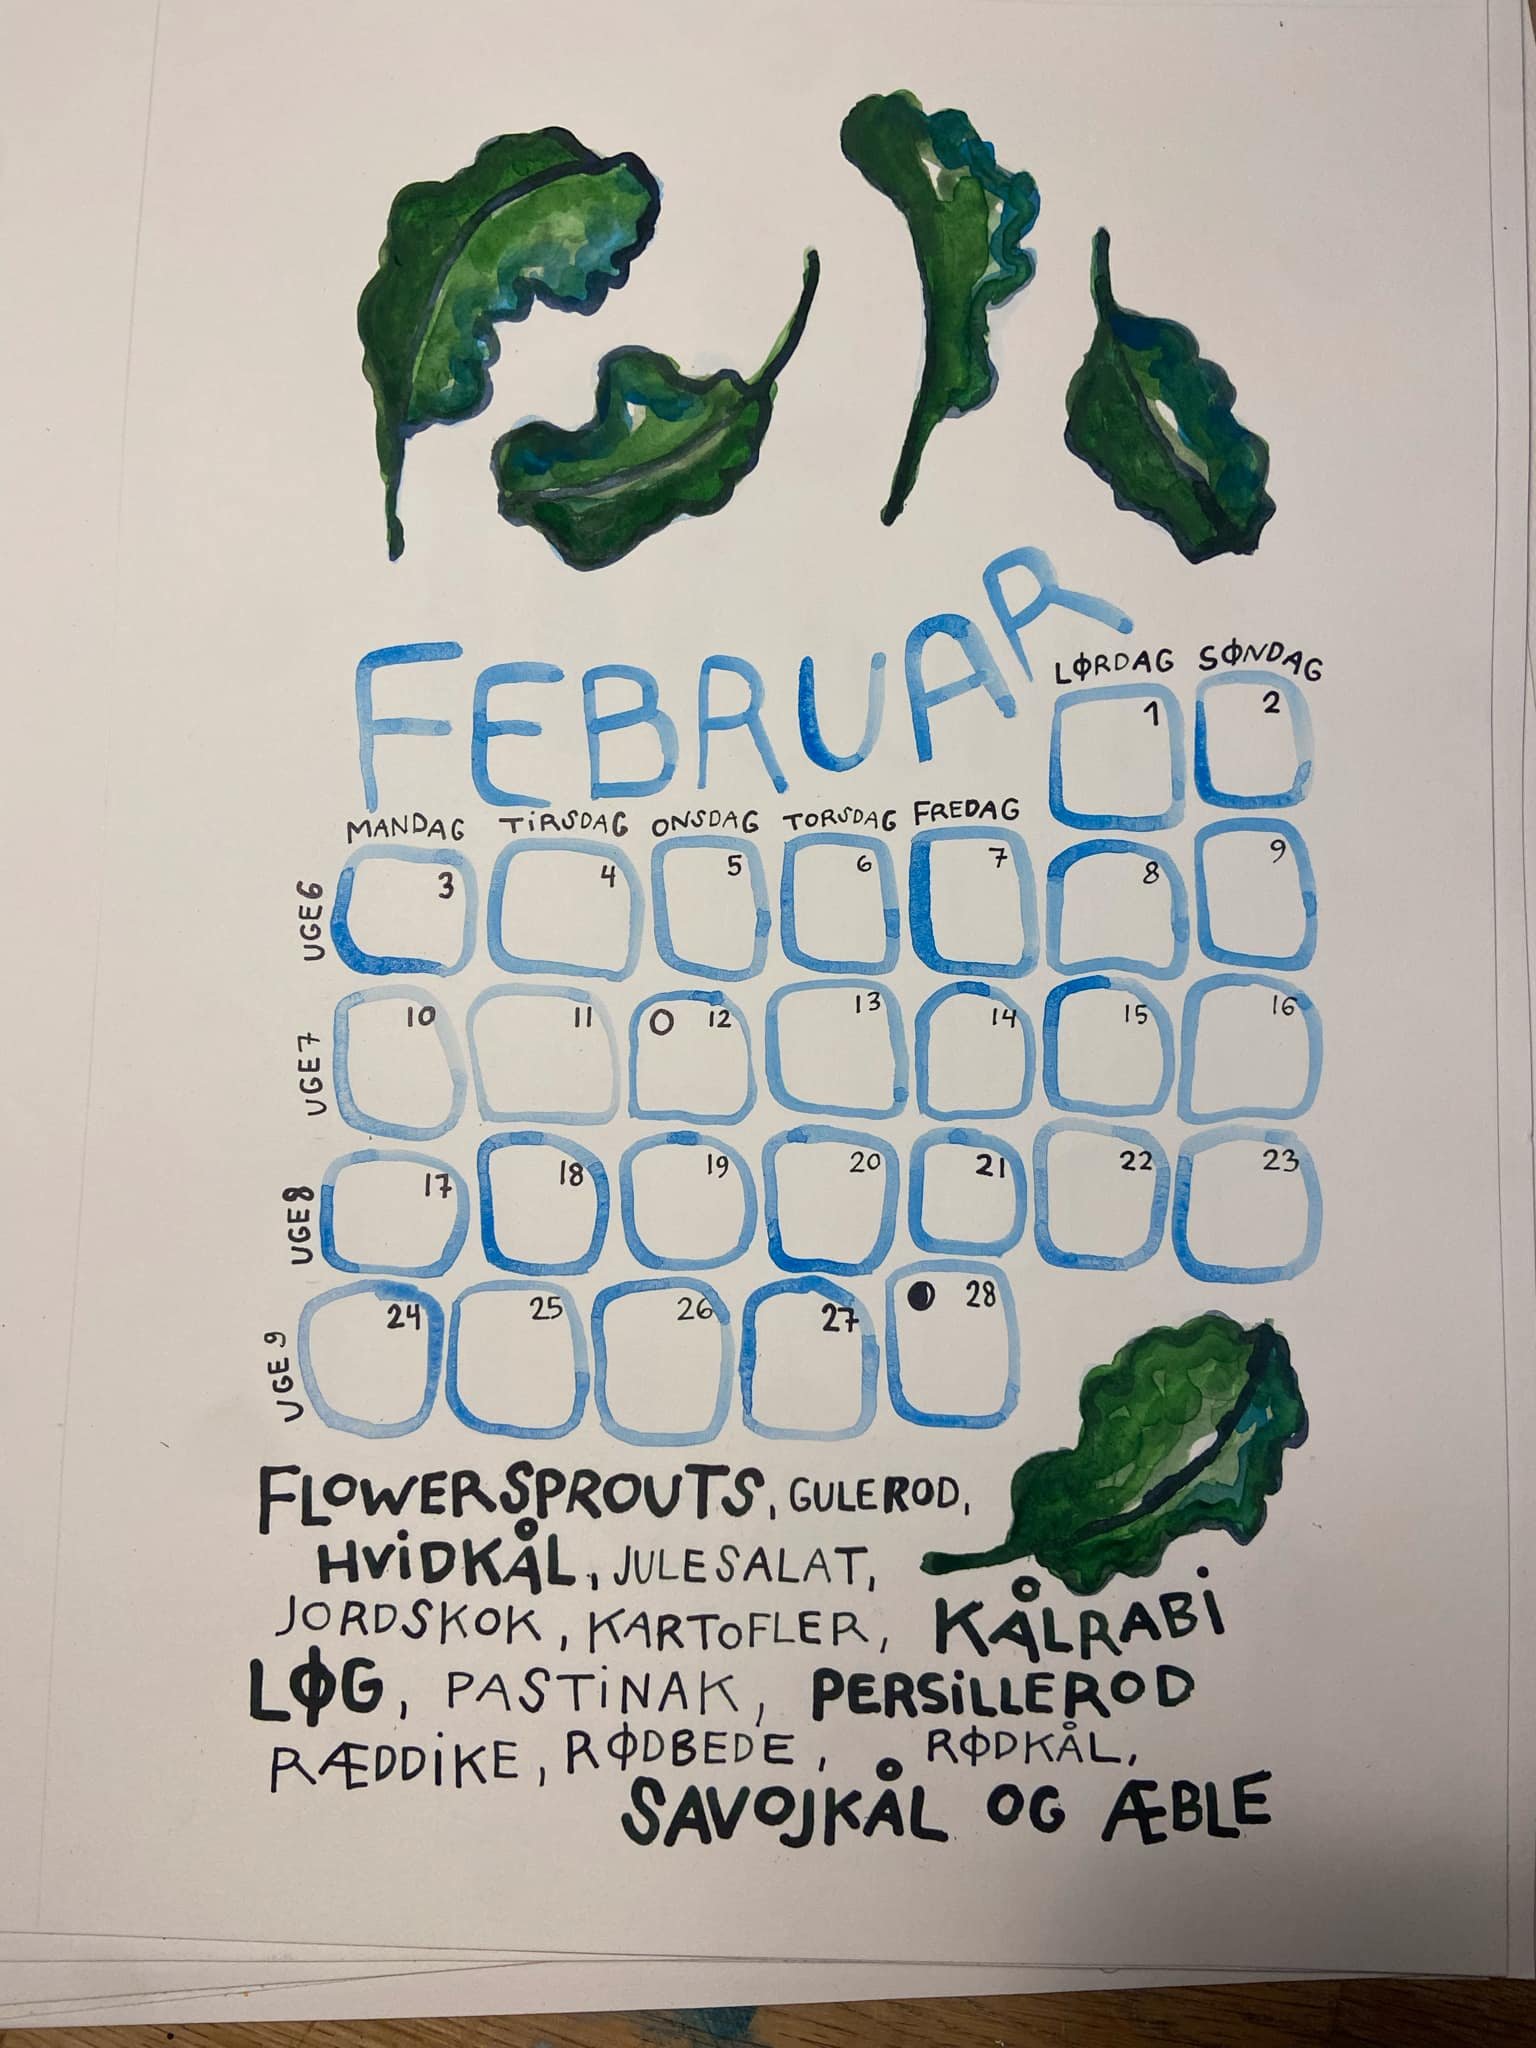 FEBRUAR
LØRDAG SØNDAG
1 2
MANDAG TiRSDAG ONSDAG TORSDAG FREDAG
UGE6 3 4 5 6 7 8 9
UGE7 10 11 12 13 14 15 16
UGE8 17 18 19 20 21 22 23
UGE9 24 25 26 27 28
FLOWERSPROUTS, GULEROD,
HViDKÅL, JULESALAT,
JORDSKOK, KARTOFLER, KÅLRABi
LØG, PASTiNAK, PERSiLLEROD
RÆDDiKE, RØDBEDE, RØDKÅL,
SAVOJKÅL OG ÆBLE